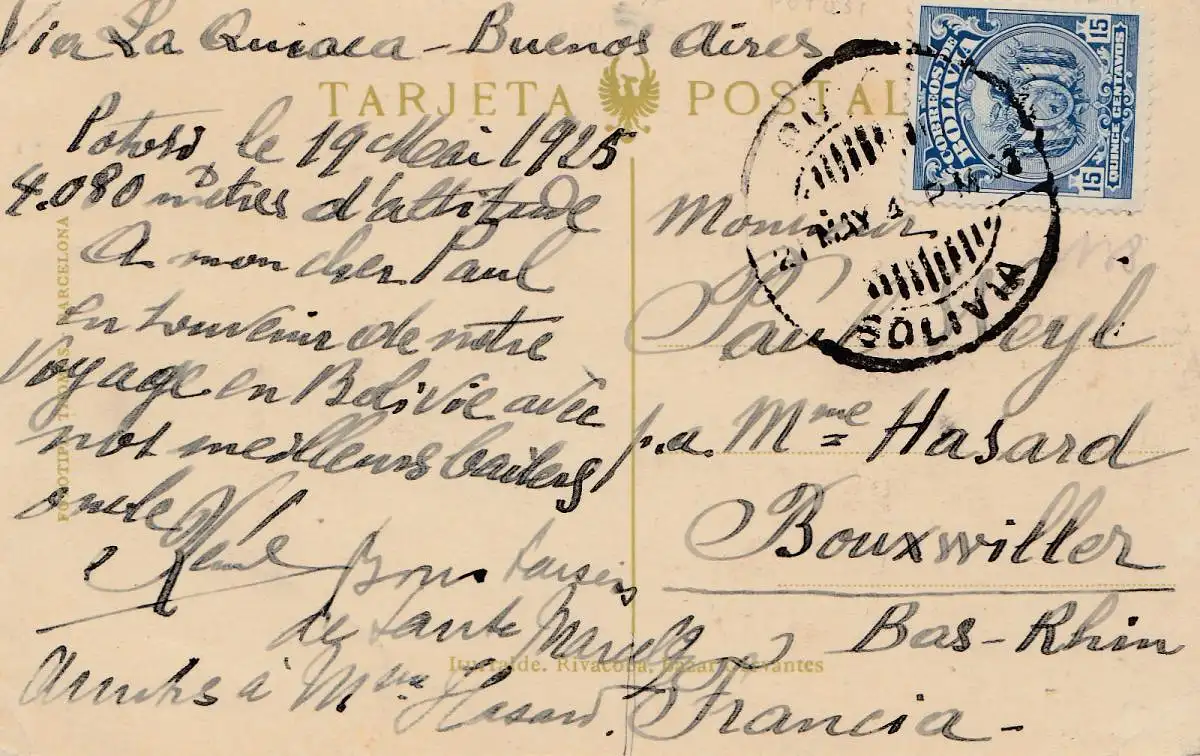 Via La Quiaca - Buenos Aires
TARJETA POSTAL
Potosi le 19 Mai 1925
4.080 mètres d'altitude
A mon cher Paul
en souvenir de notre
Voyage en Bolivie avec
nos meilleurs baisers
oncle René
Bons baisers
de tante Marcelle
à Mme Hasard.
CORREOS DE
BOLIVIA
15
QUINCE CENTAVOS
15
21 MAY 4 PM
BOLIVIA
Monsieur
Paul Weyl
p.a. Mme Hasard
Bouxwiller
Bas-Rhin
Francia -
FOTOTIPIA THOMAS BARCELONA
Iturralde. Rivacoba. Bazar Cervantes